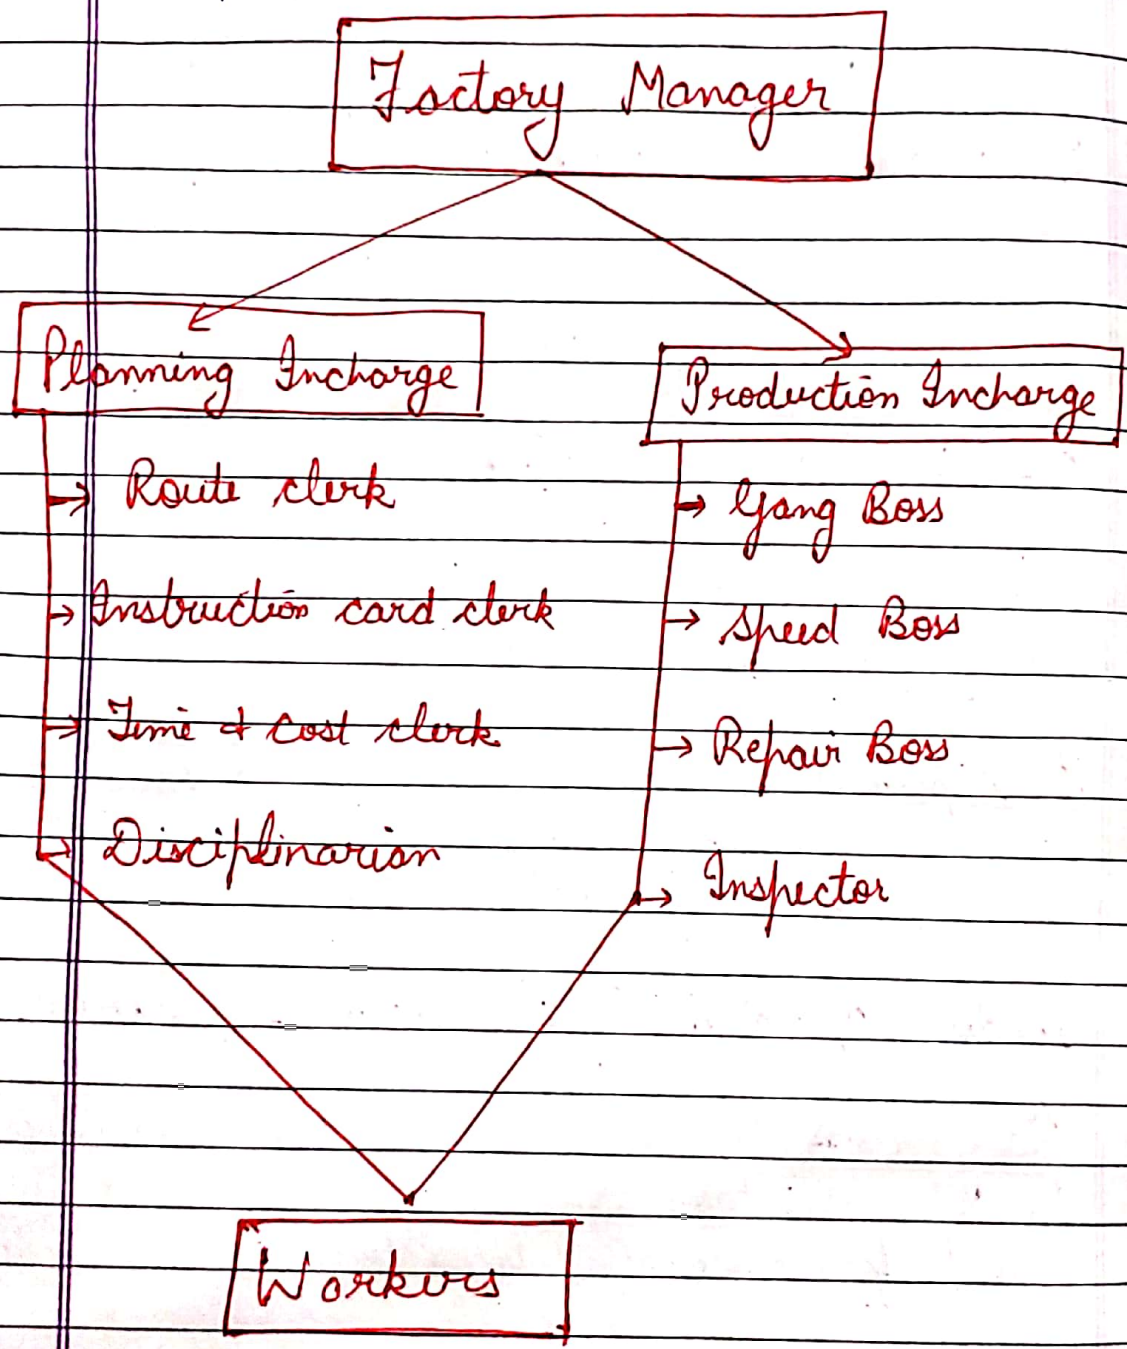 Factory Manager
Planning Incharge
Route clerk
Instruction card clerk
Time & cost clerk
Disciplinarian
Production Incharge
Gang Boss
Speed Boss
Repair Boss
Inspector
Workers